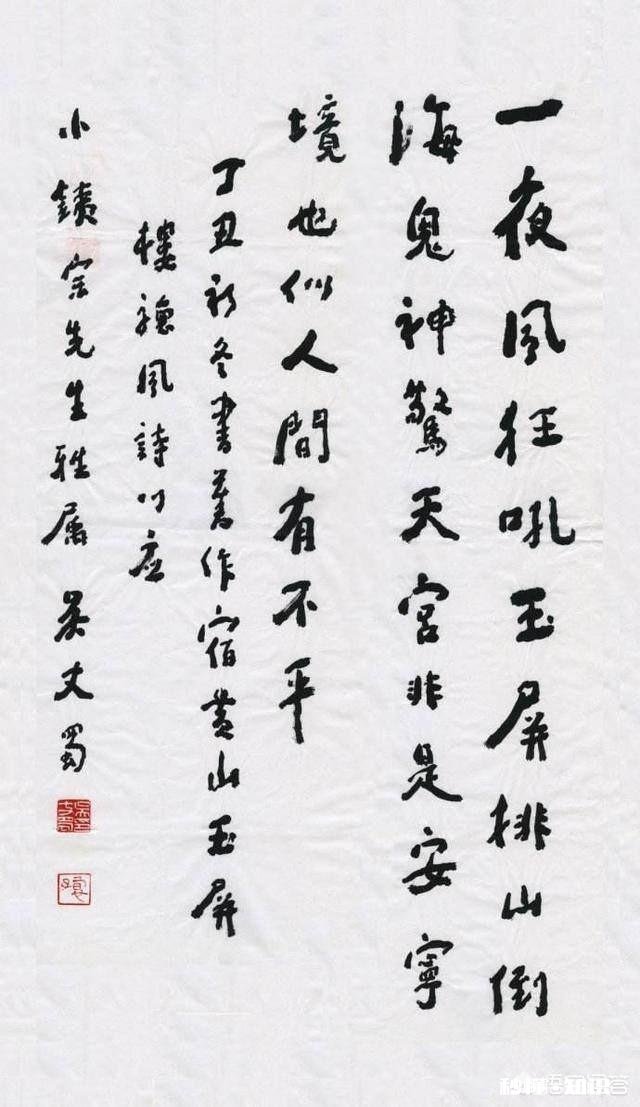 一夜風狂吼玉屏排山倒
海鬼神驚天宮非是安寧
境也似人間有不平
丁丑初冬書舊作宿黄山玉屏
樓聽風詩以应
小鐵宗先生雅属 吴丈蜀